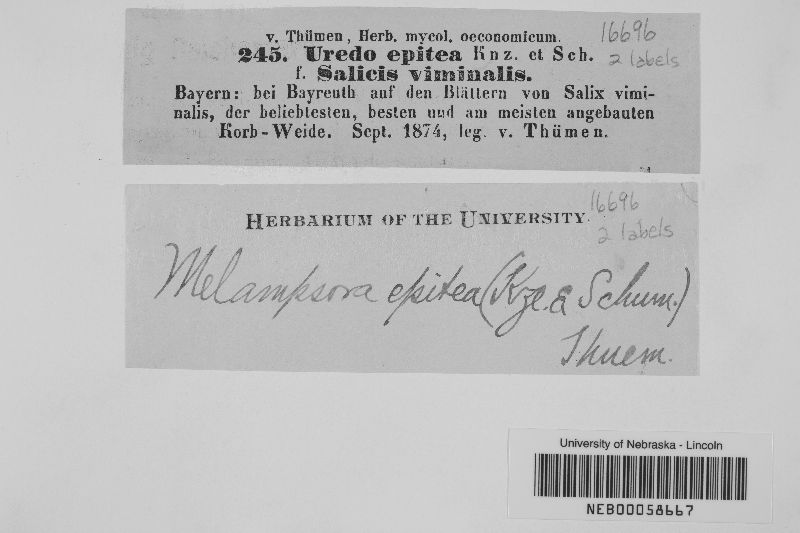 v. Thümen, Herb. mycol. oeconomicum.
16696
2 labels
245. Uredo epitea Knz. et Sch.
f. Salicis viminalis.
Bayern: bei Bayreuth auf den Blättern von Salix vimi-
nalis, der beliebtesten, besten und am meisten angebauten
Korb-Weide. Sept. 1874, leg. v. Thümen.
16696
2 labels
HERBARIUM OF THE UNIVERSITY.
Melampsora epitea (Kze. & Schum.)
Thuem.
University of Nebraska - Lincoln
NEB00058667